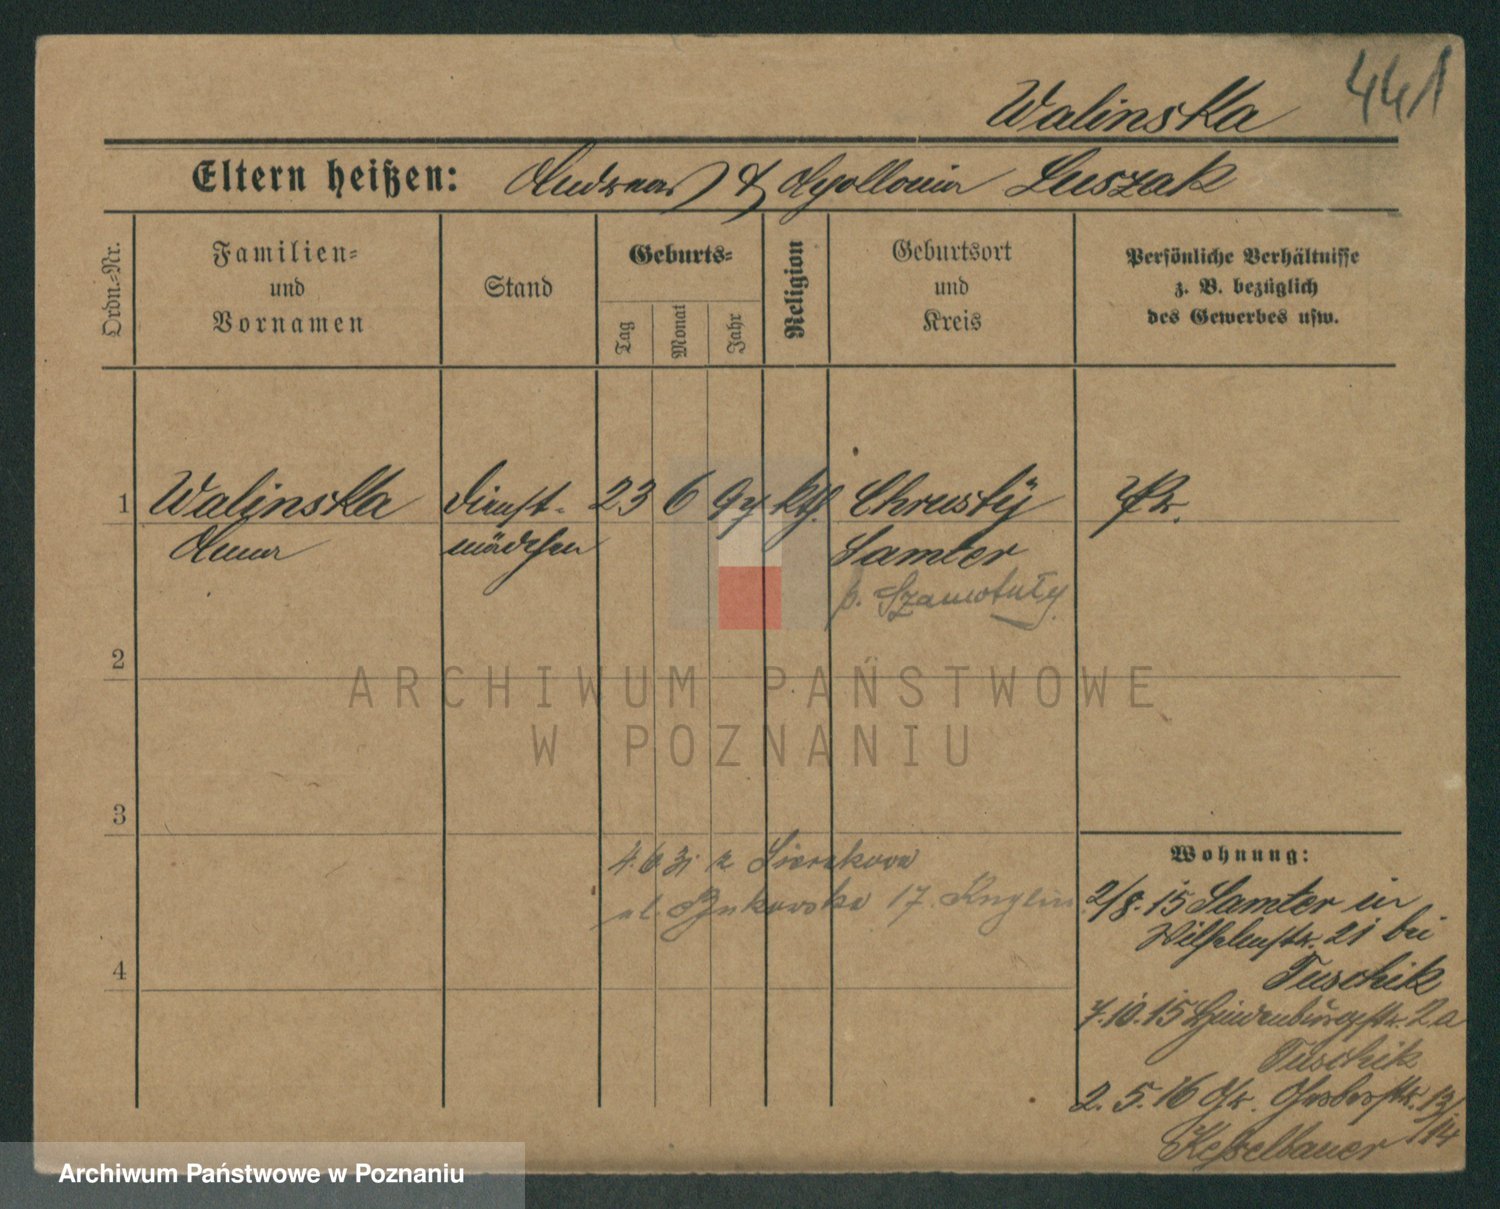 441
Walinska
Eltern heißen: Andreas & Apollonia Luszak
Ordn.-Nr.
Familien-
und
Vornamen
Stand
Geburts-
Tag
Monat
Jahr
Religion
Geburtsort
und
Kreis
Persönliche Verhältnisse
z. B. bezüglich
des Gewerbes usw.
1 Walinska Dienst- 23 6 97 kth. Chrusty Pr.
Anna mädchen Samter
p. Szamotuły
2
ARCHIWUM PAŃSTWOWE
W POZNANIU
3
4.6.31 z Sierakowa
ul. Bukowska 17.
4
Wohnung:
2/8.15 Samter in
Wilhelmstr. 21 bei
Tuschik
7.10.15 Hindenburgstr. 2a
Tuschik
2.5.16 Gr. Gerberstr. 13/14
Kesselbauer
Archiwum Państwowe w Poznaniu